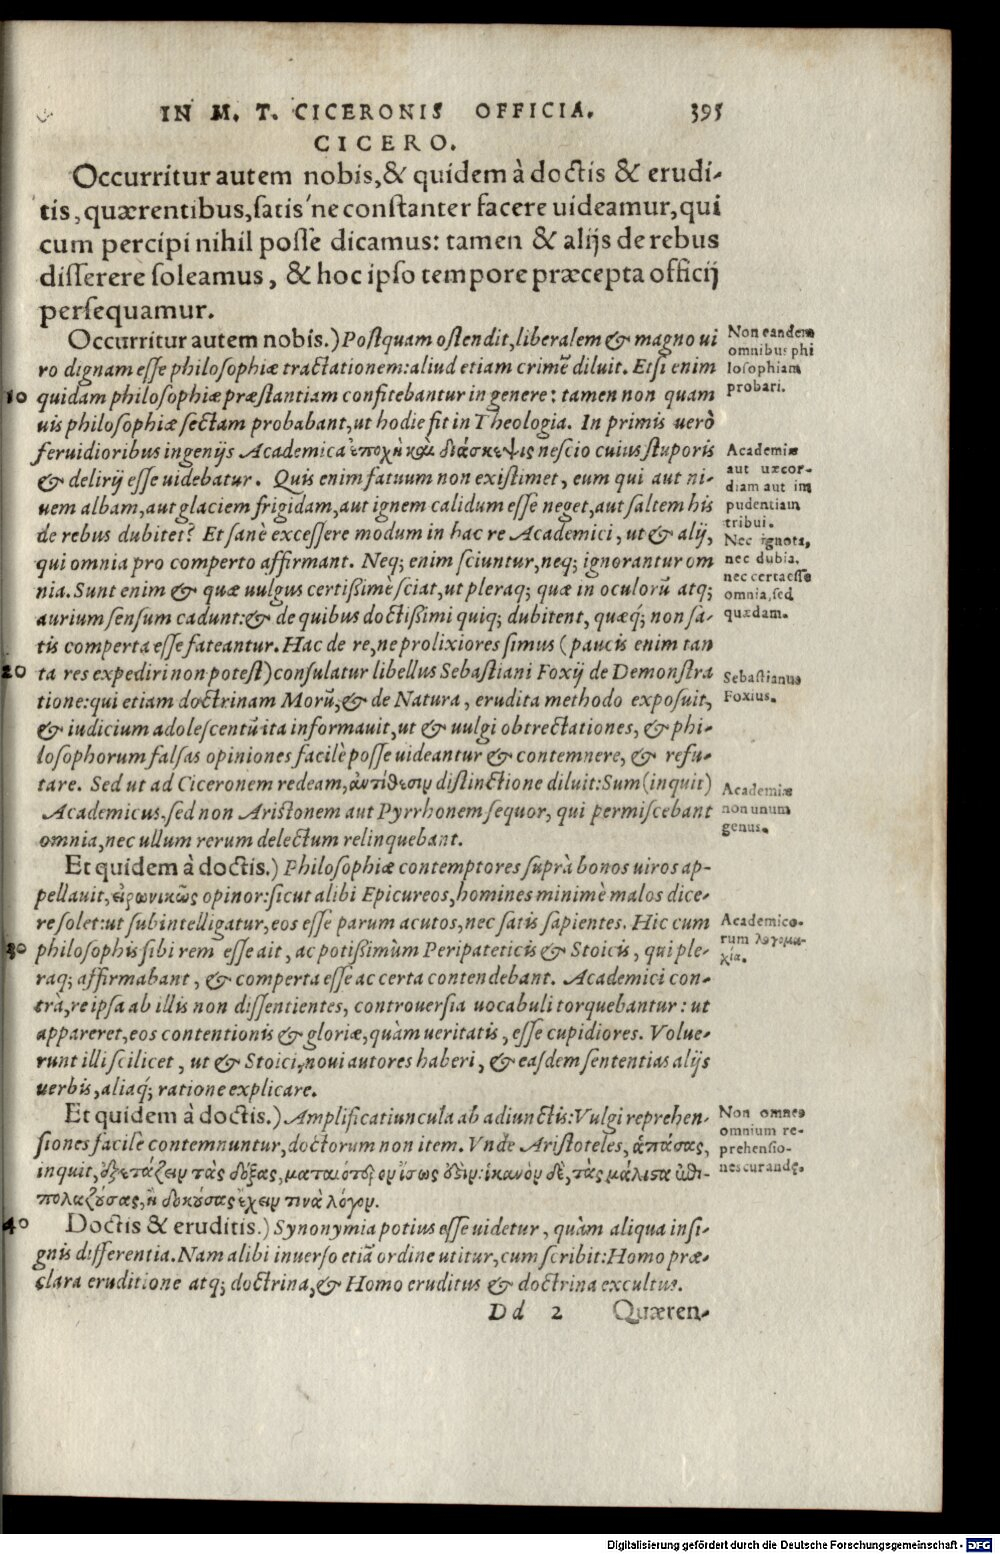 IN M. T. CICERONIS OFFICIA. 395
CICERO.
Occurritur autem nobis, & quidem à doctis & erudi-
tis, quærentibus, satis'ne constanter facere uideamur, qui
cum percipi nihil posse dicamus: tamen & alijs de rebus
disserere soleamus, & hoc ipso tempore præcepta officij
persequamur.
Occurritur autem nobis.) Postquam ostendit, liberalem & magno ui
ro dignam esse philosophiæ tractationem: aliud etiam crimẽ diluit. Etsi enim
10 quidam philosophiæ præstantiam confitebantur in genere: tamen non quam
uis philosophiæ sectam probabant, ut hodie fit in Theologia. In primis uerò
feruidioribus ingenijs Academica ἐποχὴ καὶ διάσκεψις nescio cuius stuporis
& delirij esse uidebatur. Quis enim fatuum non existimet, eum qui aut ni-
uem albam, aut glaciem frigidam, aut ignem calidum esse neget, aut saltem his
de rebus dubitet? Et sanè excessere modum in hac re Academici, ut & alij,
qui omnia pro comperto affirmant. Neq; enim sciuntur, neq; ignorantur om
nia. Sunt enim & quæ uulgus certißimè sciat, ut pleraq; quæ in oculorũ atq;
aurium sensum cadunt: & de quibus doctißimi quiq; dubitent, quæq́; non sa-
tis comperta esse fateantur. Hac de re, ne prolixiores simus (paucis enim tan
20 ta res expediri non potest) consulatur libellus Sebastiani Foxij de Demonstra
tione: qui etiam doctrinam Morũ, & de Natura, erudita methodo exposuit,
& iudicium adolescentũ ita informauit, ut & uulgi obtrectationes, & phi-
losophorum falsas opiniones facilè posse uideantur & contemnere, & refu-
tare. Sed ut ad Ciceronem redeam, ἀντίθεσιν distinctione diluit: Sum (inquit)
Academicus, sed non Aristonem aut Pyrrhonem sequor, qui permiscebant
omnia, nec ullum rerum delectum relinquebant.
Et quidem à doctis.) Philosophiæ contemptores suprà bonos uiros ap-
pellauit, εἰρωνικῶς opinor: sicut alibi Epicureos, homines minimè malos dice-
re solet: ut subintelligatur, eos esse parum acutos, nec satis sapientes. Hic cum
30 philosophis sibi rem esse ait, ac potißimùm Peripateticis & Stoicis, qui ple-
raq; affirmabant, & comperta esse ac certa contendebant. Academici con-
trà, re ipsa ab illis non dissentientes, controuersia uocabuli torquebantur: ut
appareret, eos contentionis & gloriæ, quàm ueritatis, esse cupidiores. Volue-
runt illi scilicet, ut & Stoici, noui autores haberi, & easdem sententias alijs
uerbis, aliaq́; ratione explicare.
Et quidem à doctis.) Amplificatiuncula ab adiunctis: Vulgi reprehen-
siones facile contemnuntur, doctorum non item. Vnde Aristoteles, ἁπάσας,
inquit, ἐξετάζειν τὰς δόξας, ματαιότερον ἴσως ἐστίν. ἱκανὸν δὲ, τὰς μάλιστα ἐπι-
πολαζούσας, ἢ δοκούσας ἔχειν τινὰ λόγον.
40 Doctis & eruditis.) Synonymia potius esse uidetur, quàm aliqua insi-
gnis differentia. Nam alibi inuerso etiã ordine utitur, cum scribit: Homo præ-
clara eruditione atq; doctrina, & Homo eruditus & doctrina excultus.
Dd 2 Quæren-
Non eandem
omnibus phi
losophiam
probari.
Academiæ
aut uæcor-
diam aut im
pudentiam
tribui.
Nec ignota,
nec dubia,
nec certa esse
omnia, sed
quædam.
Sebastianus
Foxius.
Academiæ
non unum
genus.
Academico-
rum λογομα-
χία.
Non omnes
omnium re-
prehensio-
nes curandę.
Digitalisierung gefördert durch die Deutsche Forschungsgemeinschaft - DFG